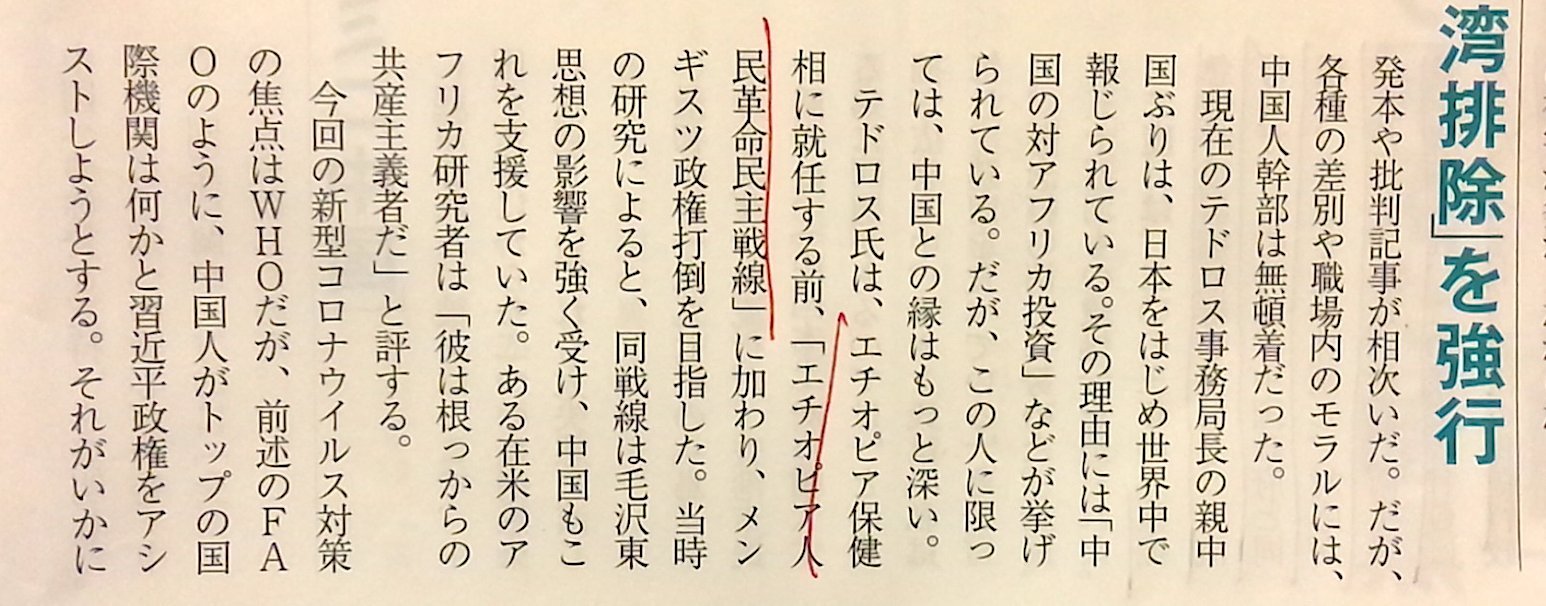 湾排除」を強行
発本や批判記事が相次いだ。だが、
各種の差別や職場内のモラルには、
中国人幹部は無頓着だった。
現在のテドロス事務局長の親中
国ぶりは、日本をはじめ世界中で
報じられている。その理由には「中
国の対アフリカ投資」などが挙げ
られている。だが、この人に限っ
ては、中国との縁はもっと深い。
テドロス氏は、エチオピア保健
相に就任する前、「エチオピア人
民革命民主戦線」に加わり、メン
ギスツ政権打倒を目指した。当時
の研究によると、同戦線は毛沢東
思想の影響を強く受け、中国もこ
れを支援していた。ある在米のア
フリカ研究者は「彼は根っからの
共産主義者だ」と評する。
今回の新型コロナウイルス対策
の焦点はWHOだが、前述のFA
Oのように、中国人がトップの国
際機関は何かと習近平政権をアシ
ストしようとする。それがいかに